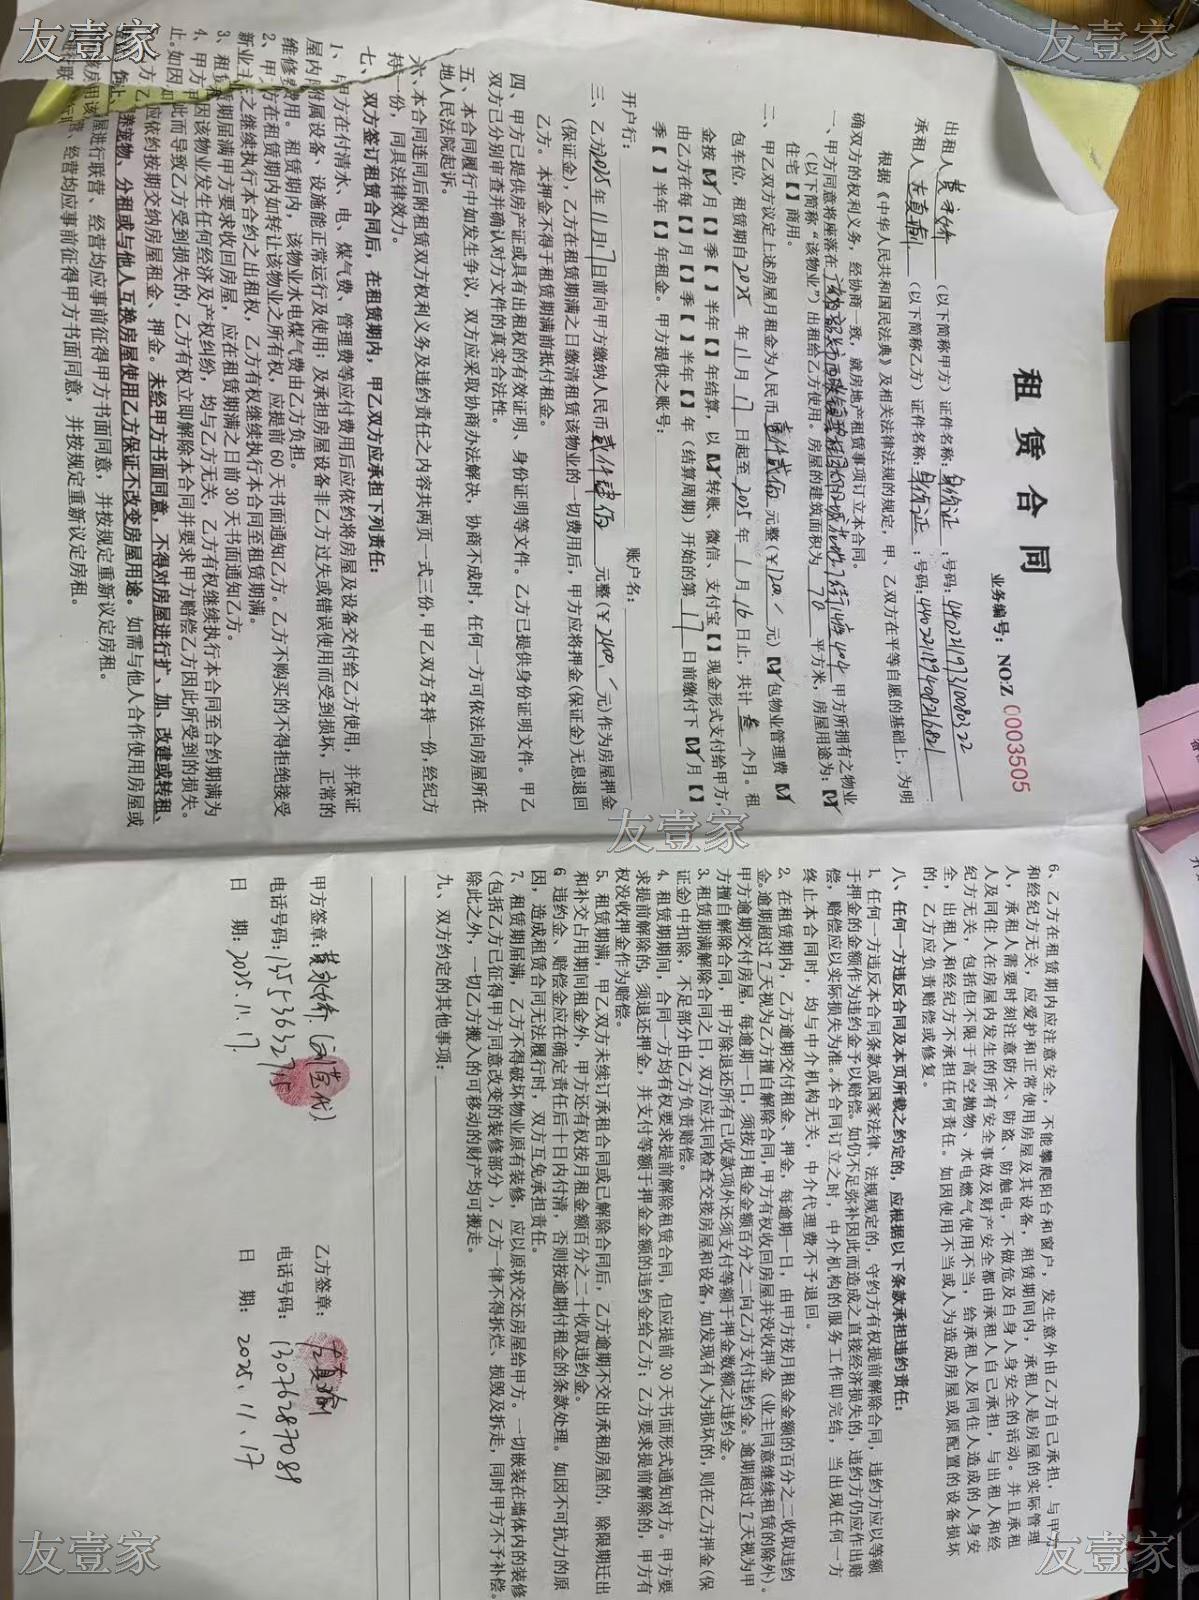 友壹家
友壹家
租赁合同
业务编号：NO:Z 0003505
出租人 （以下简称甲方）证件名称：身份证 ；号码：
承租人 （以下简称乙方）证件名称：身份证 ；号码：
根据《中华人民共和国民法典》及相关法律法规的规定，甲、乙双方在平等自愿的基础上，为明
确双方的权利义务，经协商一致，就房地产租赁事项订立本合同。
一、甲方同意将座落在 404 甲方所拥有之物业
（以下简称“该物业”）出租给乙方使用。房屋的建筑面积为 70 平方米，房屋用途为：【✓】
住宅【】商用。
二、甲乙双方议定上述房屋月租金为人民币 壹仟贰佰 元整（￥1200 元）【✓】包物业管理费【✓】
包车位，租赁期自 年 11 月 17 日起至 年 月 16 日止，共计 叁 个月。租
金按【✓】月【】季【】半年【】年结算，以【✓】转账、微信、支付宝【】现金形式支付给甲方，
由乙方在每【】月【】季【】半年【】年（结算周期）开始的第 17 日前缴付下【✓】月【】
季【】半年【】年租金。甲方提供之账号：
开户行： 账户名：
三、乙方2025年11月17日前向甲方缴纳人民币 贰仟肆佰 元整（￥2400 元）作为房屋押金
（保证金），乙方在租赁期满之日缴清租赁该物业的一切费用后，甲方应将押金（保证金）无息退回
乙方。本押金不得于租赁期满前抵付租金。
四、甲方已提供房产证或具有出租权的有效证明、身份证明等文件。乙方已提供身份证明文件。甲乙
双方已分别审查并确认对方文件的真实合法性。
五、本合同履行中如发生争议，双方应采取协商办法解决，协商不成时，任何一方可依法向房屋所在
地人民法院起诉。
六、本合同连同后附租赁双方权利义务及违约责任之内容共两页一式三份，甲乙双方各持一份，经纪方
持一份，同具法律效力。
七、双方签订租赁合同后，在租赁期内，甲乙双方应承担下列责任：
1、甲方在付清水、电、煤气费、管理费等应付费用后应依约将房屋及设备交付给乙方使用，并保证
屋内附属设备、设施能正常运行及使用；及承担房屋设备非乙方过失或错误使用而受到损坏，正常的
维修费用。租赁期内，该物业水电煤气费由乙方负担。
2、甲方在租赁期内如转让该物业之所有权，应提前60天书面通知乙方。乙方不购买的不得拒绝接受
新业主之继续执行本合约之出租权，乙方有权继续执行本合同至租赁期满。
3、租赁期届满甲方要求收回房屋，应在租赁期满之日前30天书面通知乙方。
4、甲方因该物业发生任何经济及产权纠纷，均与乙方无关，乙方有权继续执行本合同至合约期满为
止。如因此而导致乙方受到损失的，乙方有权立即解除本合同并要求甲方赔偿乙方因此所受到的损失。
乙方应依约按期交纳房屋租金、押金。未经甲方书面同意，不得对房屋进行扩、加、改建或转租、
养宠物、分租或与他人互换房屋使用乙方保证不改变房屋用途。如需与他人合作使用房屋或
屋进行联营、经营均应事前征得甲方书面同意，并按规定重新议定房租。
经营均应事前征得甲方书面同意，并按规定重新议定房租。
友壹家
6、乙方在租赁期内应注意安全，不能攀爬阳台和窗户，发生意外由乙方自己承担，与甲方
和经纪方无关，应爱护和正常使用房屋及其设备，租赁期间内，承租人是房屋的实际管理
人，承租人需要时刻注意防火、防盗、防触电，不做危及自身人身安全的活动。并且承租
人及同住人在房屋内发生的所有安全事故及财产安全都由承租人自己承担，与出租人和经
纪方无关，包括但不限于高空抛物、水电燃气使用不当，给承租人及同住人造成的人身安
全，出租人和经纪方不承担任何责任。如因使用不当或人为造成房屋或原配置的设备损坏
的，乙方应负责赔偿或修复。
八、任何一方违反合同及本页所载之约定的，应根据以下条款承担违约责任：
1、任何一方违反本合同条款或国家法律、法规规定的，守约方有权提前解除合同，违约方应以等额
于押金的金额作为违约金予以赔偿。如仍不足弥补因此而造成之直接经济损失的，违约方仍应作出赔
偿，赔偿应以实际损失为准。本合同订立之时，中介机构的服务工作即完结，当出现任何一方
终止本合同时，均与中介机构无关，中介代理费不予退回。
2、在租赁期内，乙方逾期交付租金、押金，每逾期一日，由甲方按月租金金额的百分之二收取违约
金。逾期超过7天视为乙方擅自解除合同，甲方有权收回房屋并没收押金（业主同意继续租赁的除外）。
甲方逾期交付房屋，每逾期一日，须按月租金金额百分之二向乙方支付违约金。逾期超过7天视为甲
方擅自解除合同，甲方除退还所有已收款项外还须支付等额于押金数额之违约金。
3、租赁期满解除合同之日，双方应共同检查交接房屋和设备，如发现有人为损坏的，则在乙方押金（保
证金）中扣除，不足部分由乙方负责赔偿。
4、租赁期期间，合同一方均有权要求提前解除租赁合同，但应提前30天书面形式通知对方。甲方要
求提前解除的，须退还押金，并支付等额于押金金额的违约金给乙方；乙方要求提前解除的，甲方有
权没收押金作为赔偿。
5、租赁期满，甲乙双方未续订承租合同或已解除合同后，乙方逾期不交出承租房屋的，除限期迁出
和补交占用期间租金外，甲方还有权按月租金额百分之二十收取违约金。
6、违约金、赔偿金应在确定责任后十日内付清，否则按逾期付租金的条款处理。如因不可抗力的原
因，造成租赁合同无法履行时，双方互免承担责任。
7、租赁期届满，乙方不得破坏物业原有装修，应以原状交还房屋给甲方。一切嵌装在墙体内的装修
（包括乙方已征得甲方同意改变的装修部分），乙方一律不得拆烂、损毁及拆走，同时甲方不予补偿。
除此之外，一切乙方搬入的可移动的财产均可搬走。
九、双方约定的其他事项：
甲方签章： 乙方签章：
电话号码： 电话号码：13076287089
日 期：2025.11.17. 日 期：2025.11.17
友壹家
友壹家